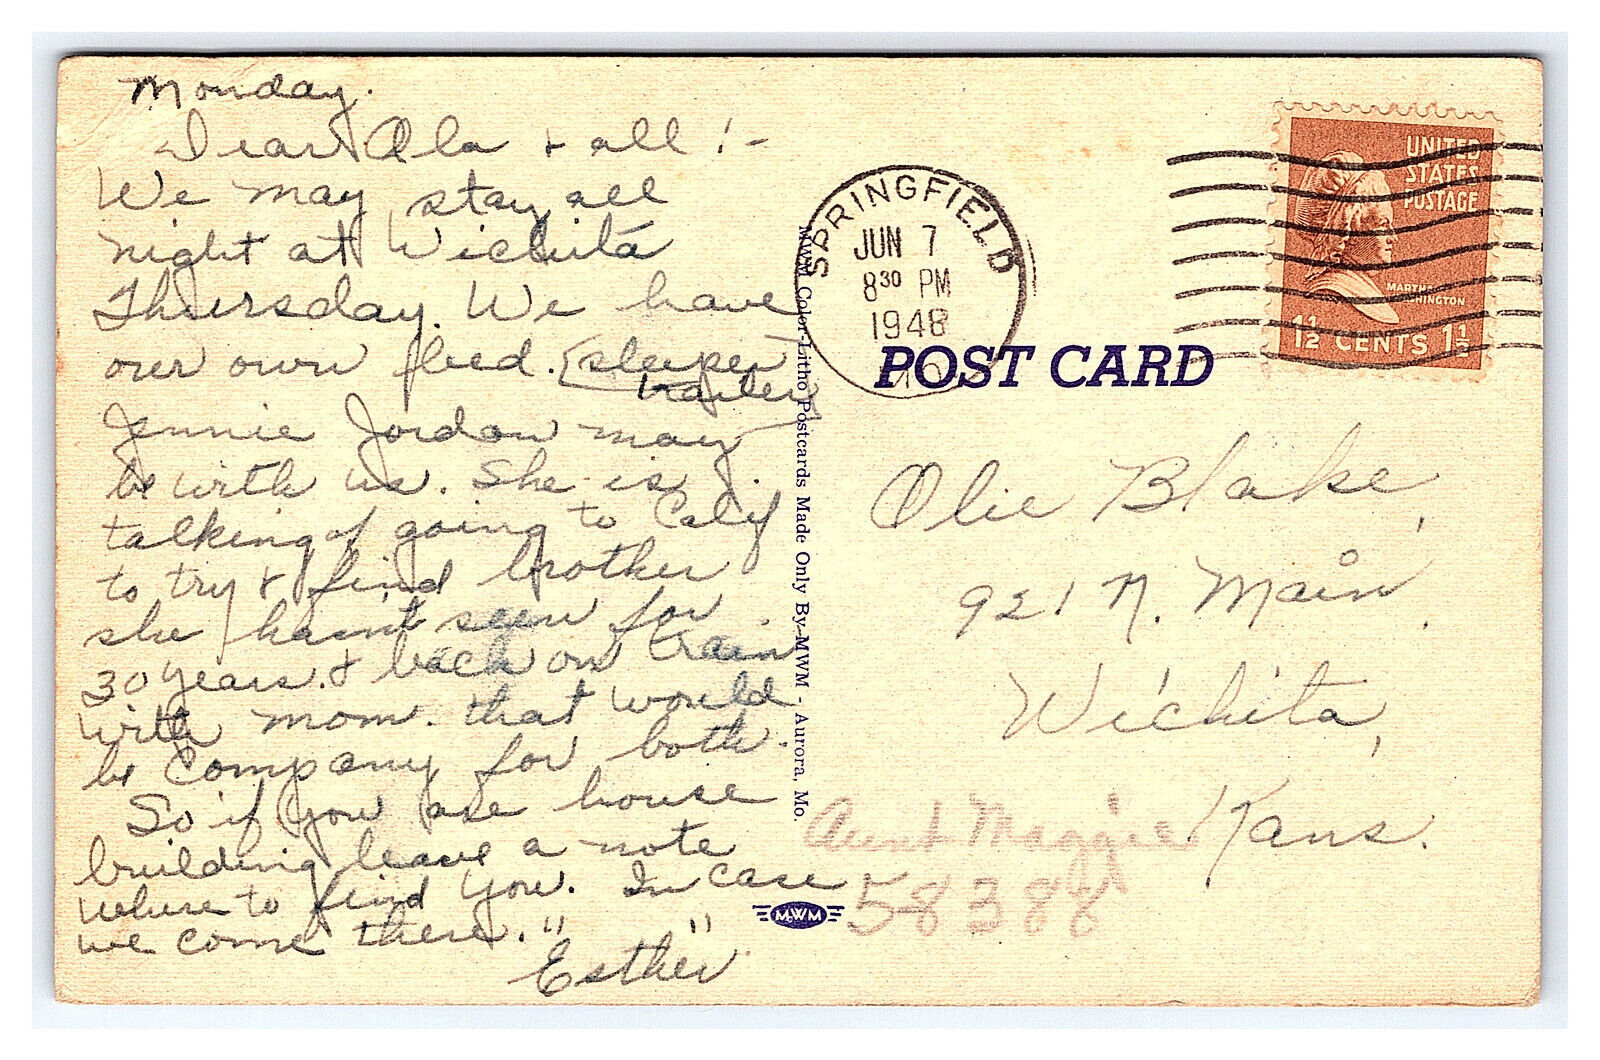 Monday.
Dear Ola & all!-
We may stay all
night at Wichita
Thursday. We have
our own bed. (sleeper
trailer)
Jennie Jordan may
be with us. She is
talking of going to Calif
to try & find brother
she hasn't seen for
30 years. & back on train
with mom. that would
be company for both.
So if you are house
building leave a note
where to find you. In case
we come there."
Esther"
MWM Color-Litho Postcards Made Only By-MWM - Aurora, Mo.
MWM
SPRINGFIELD
JUN 7
8 30 PM
1948
MO.
UNITED
STATES
POSTAGE
MARTHA
WASHINGTON
1½ CENTS 1½
POST CARD
Olie Blake,
921 N. Main,
Wichita,
Kans.
Aunt Maggie
58388